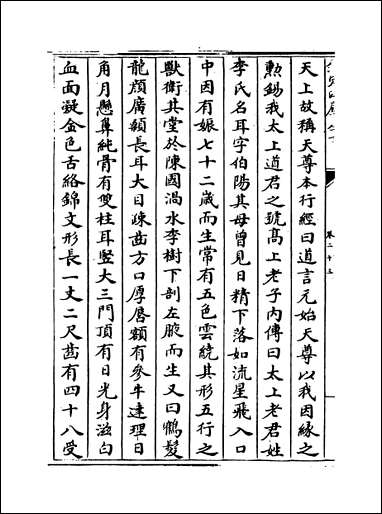 天上故稱天尊本行經曰道言元始天尊以我因緣之
勲錫我太上道君之號髙上老子內傳曰太上老君姓
李氏名耳字伯陽其母曾見日精下落如流星飛入口
中因有娠七十二歲而生常有五色雲繞其形五行之
獸衛其堂於陳國渦水李樹下剖左腋而生又曰鶴髮
龍顔廣顙長耳大目疎齒方口厚唇額有參牛達理日
角月懸鼻純骨有雙柱耳竪大三門頂有日光身滋白
血面凝金色舌絡錦文形長一丈二尺齒有四十八受